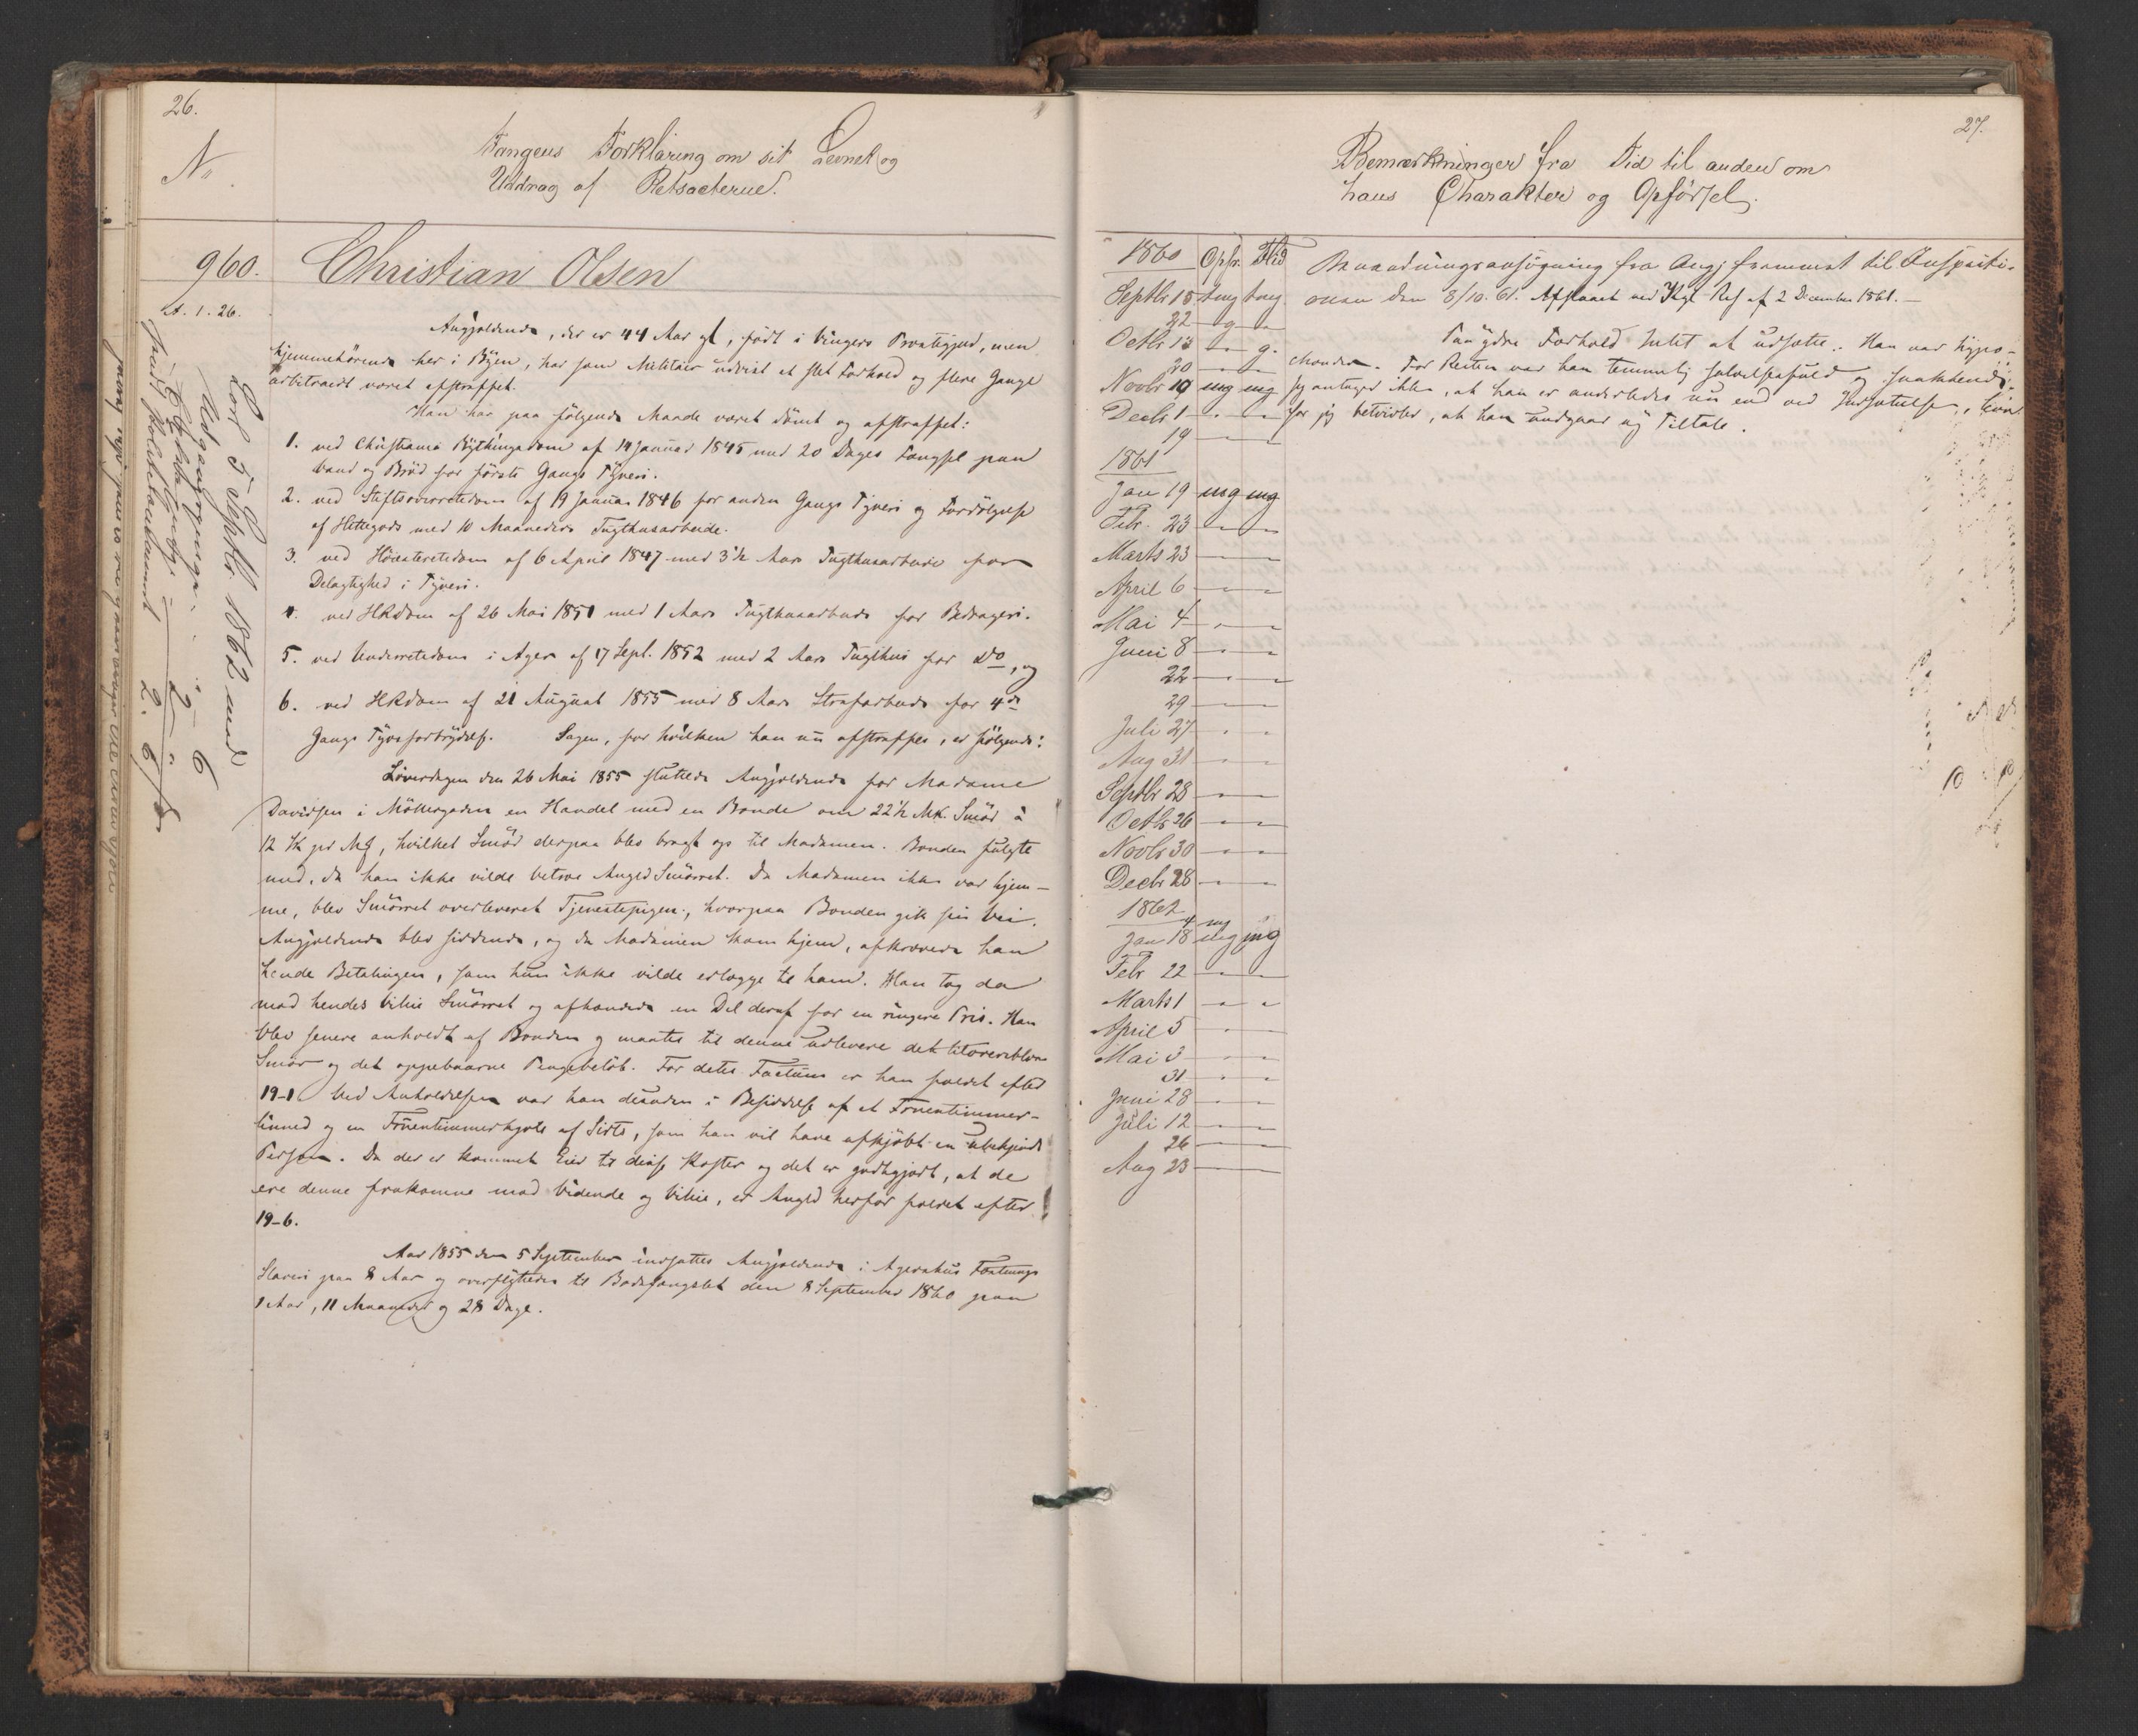 26.
No
Fangens Forklaring om sit Levnet og
Uddrag af Retsacterne.
960.
Christian Olsen
A. 1. 26.
Løsl. 5 Septbr 1862 med
Udgangspenge " 2 - 6
2. 6
Angjældende, der er 44 Aar gl, født i Vingers Præstegjæld, men
hjemmehørende her i Byen, har som Militair udvist et slet Forhold og flere Gange
arbitrairt været afstraffet.
Han har paa følgende Maade været dømt og afstraffet:
1. ved Christiania Bythingsdom af 14 Januar 1845 med 20 Dages Fængsel paa
Vand og Brød for første Gangs Tyveri.
2. ved Stiftsoverretsdom af 19 Januar 1846 for anden Gangs Tyveri og Fordølgelse
af Hittegods med 10 Maaneders Tugthusarbeide.
3. ved Høiesteretsdom af 6 April 1847 med 3½ Aars Tugthusarbeide for
Delagtighed i Tyveri.
4. ved HRdom af 26 Mai 1851 med 1 Aars Tugthusarbeide for Bedrageri.
5. ved Underretsdom i Ager af 17 Sept. 1852 med 2 Aars Tugthus for Do, og
6. ved HRdom af 21 August 1855 med 8 Aars Strafarbeide for 4de
Gangs Tyvsforbrydelse. Sagen, for hvilken han nu afstraffes, er følgende:
Løverdagen den 26 Mai 1855 sluttede Angjældende for Madame
Davidsen i Møllergaden en Handel med en Bonde om 22½ Mk. Smør à
12 sk pr Mk, hvilket Smør derpaa blev bragt op til Madamen. Bonden fulgte
med, da han ikke vilde betroe Angjld Smørret. Da Madamen ikke var hjem-
me, blev Smørret overleveret Tjenestepigen, hvorpaa Bonden gik sin Vei.
Angjældende blev siddende, og da Madamen kom hjem, afkrævede han
hende Betalingen, som hun ikke vilde erlægge til ham. Han tog da
mod hendes Villie Smørret og afhændede en Del deraf for en ringere Pris. Han
blev senere anholdt af Bonden og maatte til denne udlevere det tiloversblevne
Smør og det oppebaarne Pengebeløb. For dette Factum er han fældet efter
19-1. Ved Anholdelsen var han desuden i Besiddelse af et Fruentimmer-
linned og en Fruentimmerkjole af Sirts, som han vil have afkjøbt en ubekjendt
Person. Da der er kommet Eier til disse Koster og det er godtgjort, at de
ere denne frakomne mod Vidende og Villie, er Angjld herfor fældet efter
19-6.
Aar 1855 den 5 September indsattes Angjældende i Agershus Fæstnings
Slaveri paa 8 Aar og overflyttedes til Bodsfængslet den 8 September 1860 paa
1 Aar, 11 Maaneder og 28 Dage.
27.
Bemærkninger fra Tid til anden om
hans Charakter og Opførsel.
1860 Opfr. Flid
Septbr 15 tmg tmg
22 - g - "
Octbr 13 - " - g.
20 - " - "
Novbr 10 mg mg
Decbr 1 - " - "
19 - " - "
1861
Jan 19 mg mg
Febr. 23 - " - "
Marts 23 - " - "
April 6 - " - "
Mai 4 - " - "
Juni 8 - " - "
22 - " - "
29 - " - "
Juli 27 - " - "
Aug 31 - " - "
Septbr 28 - " - "
Octbr 26 - " - "
Novbr 30 - " - "
Decbr 28 - " - "
1862
4 mg
Jan 18 mg mg
Febr 22 - " - "
Marts 1 - " - "
April 5 - " - "
Mai 3 - " - "
31 - " - "
Juni 28 - " - "
Juli 12 - " - "
26 - " - "
Aug 23 - " - "
Benaadningsansøgning fra Angj fremmet til Inspecti-
onen den 8/10. 61. Afslaaet ved Kgl Res af 2 December 1861. -
Paa ydre Forhold Intet at udsætte. Han var hypo-
chonder. For Resten var han temmelig salvelsesfuld og snakkende.
Jeg antager ikke, at han er anderledes nu end ved Indsættelsen,
for jeg betvivler, at han undgaar ny Tiltale.